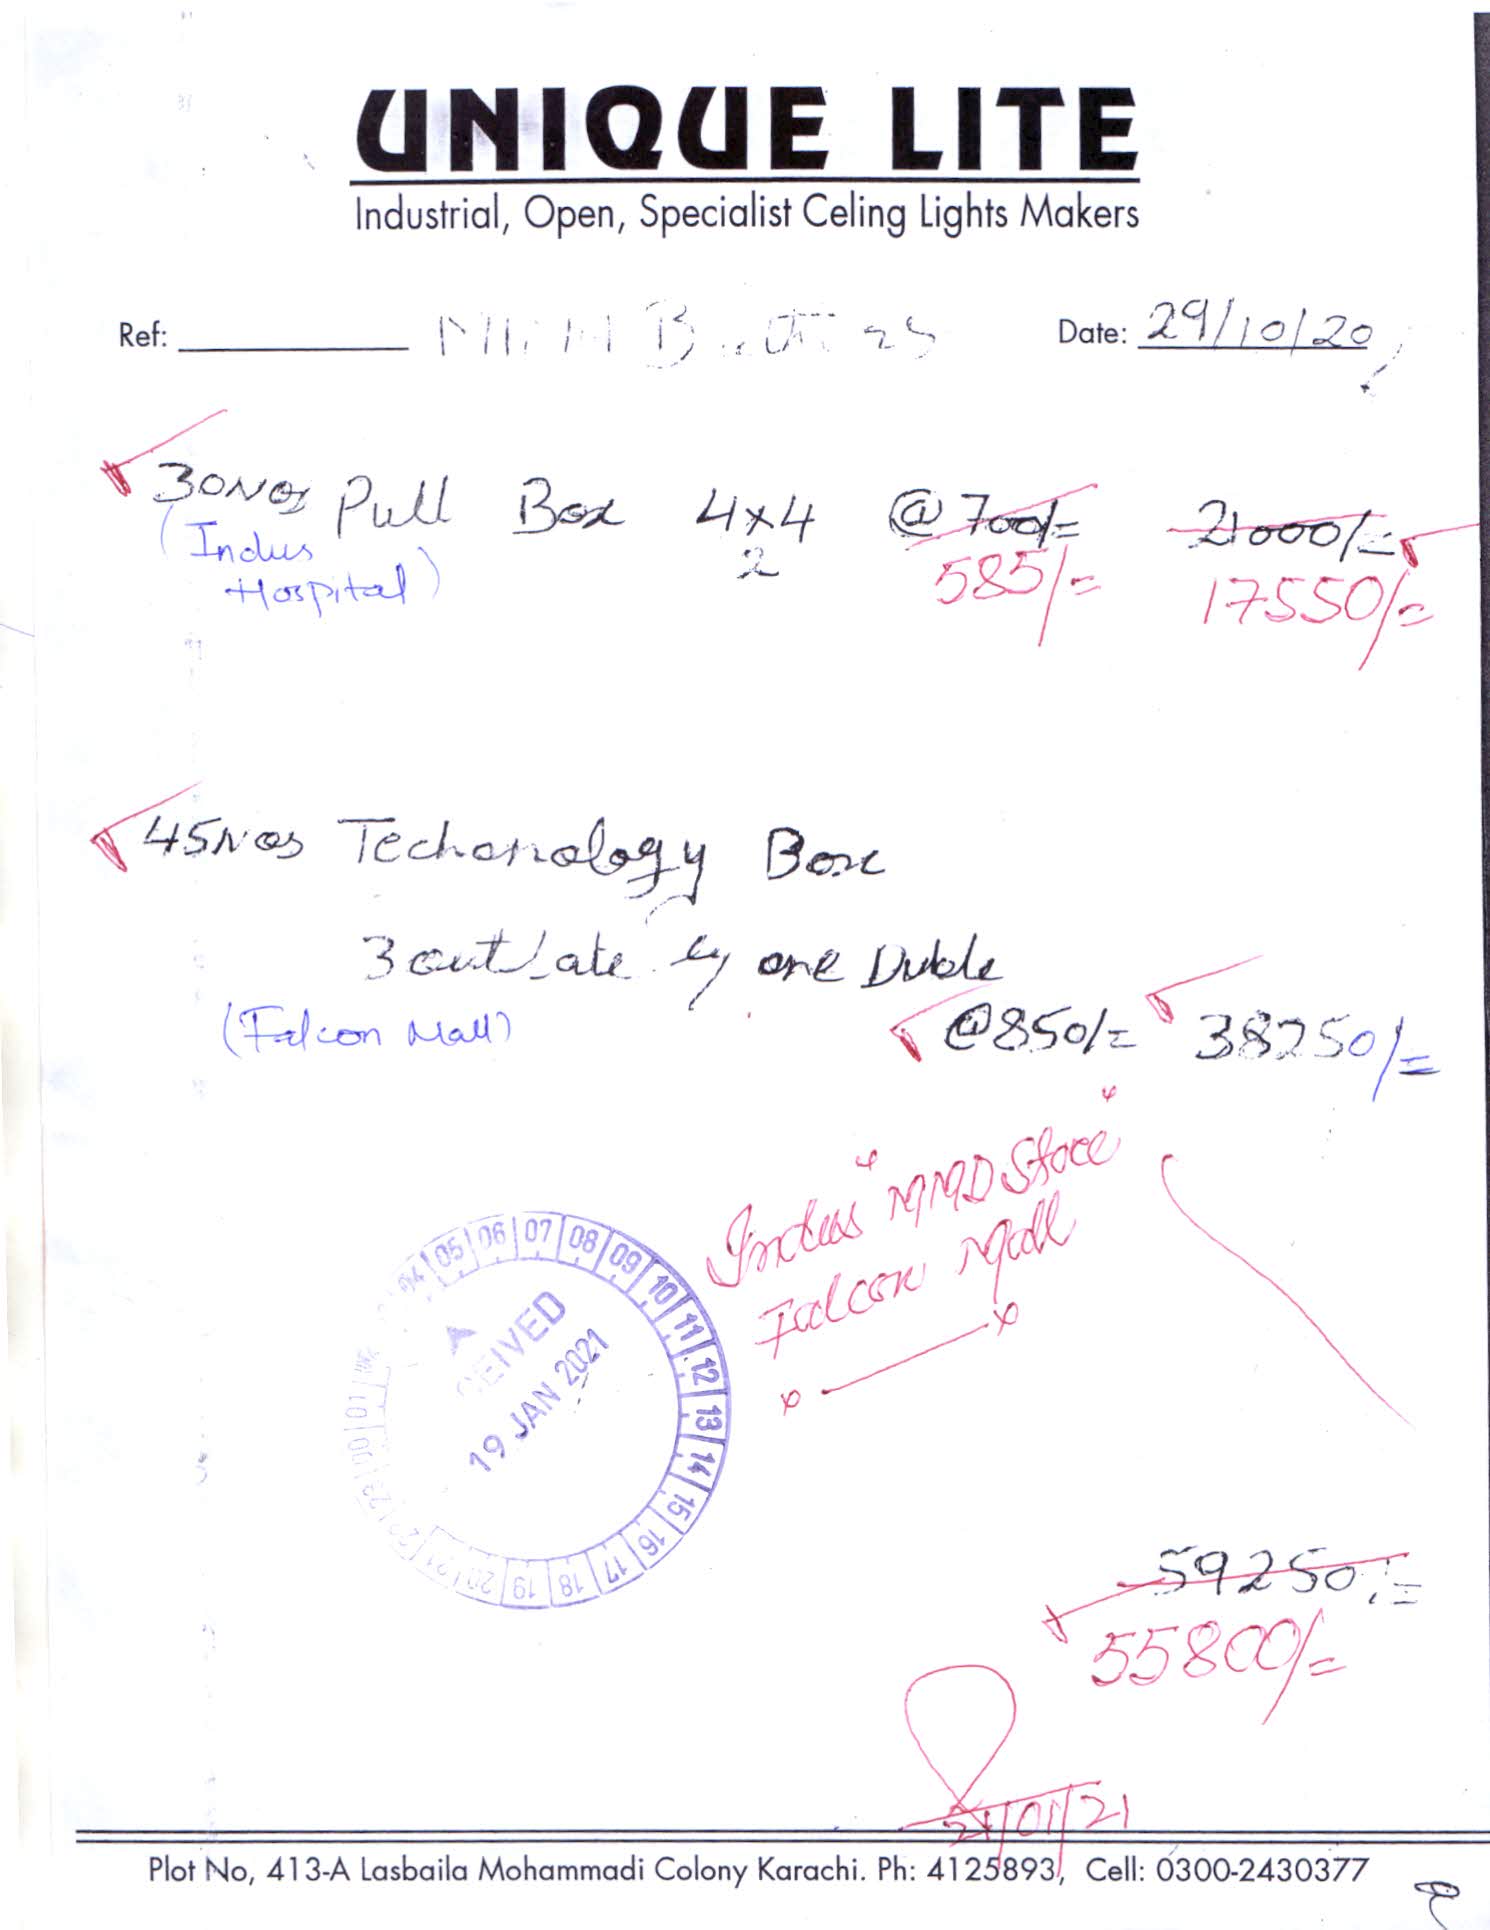 UNIQUE LITE
Industrial, Open, Specialist Celing Lights Makers
Ref:
Date: 29/10/20
30Nos Pull Box 4x4 @ 700/= 21000/=
2
(Indus
Hospital)
585/= 17550/=
45Nos Techonology Box
3 outlate by one Duble
(Falcon Mall) @ 850/= 38250/=
Indus "MMD Store"
Falcon Mall
04 05 06 07 08 09 10 11 12 13 14 15 16 17 18 19 20 21
CEIVED
19 JAN 2021
59250/=
55800/=
21/01/21
Plot No, 413-A Lasbaila Mohammadi Colony Karachi. Ph: 4125893, Cell: 0300-2430377